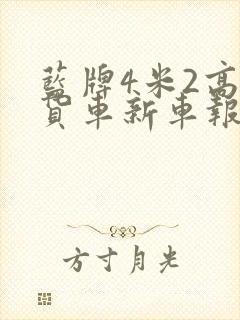 藍牌4米2高
貨車新車報
方寸月光